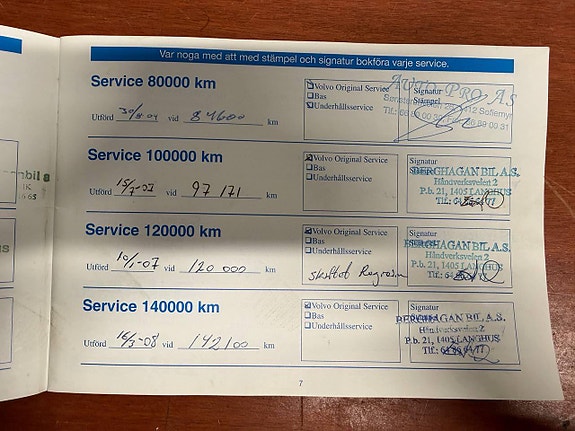 Var noga med att med stämpel och signatur bokföra varje service.
Service 80000 km
Utförd 30/8-04 vid 84600 km
Volvo Original Service
Bas
Underhållsservice
Signatur
Stämpel
AUTO PRO AS
Service 100000 km
Utförd 15/7-07 vid 97171 km
Volvo Original Service
Bas
Underhållsservice
Signatur
BERGHAGAN BIL A.S.
Håndverksveien 2
P.b. 21, 1405 LANGHUS
Service 120000 km
Utförd vid 120 000 km
Volvo Original Service
Bas
Underhållsservice
skiftet
BERGHAGAN BIL A.S.
Håndverksveien 2
P.b. 21, 1405 LANGHUS
Service 140000 km
Utförd 16/3-08 vid 142100 km
Volvo Original Service
Bas
Underhållsservice
BERGHAGAN BIL A.S.
Håndverksveien 2
P.b. 21, 1405 LANGHUS
7